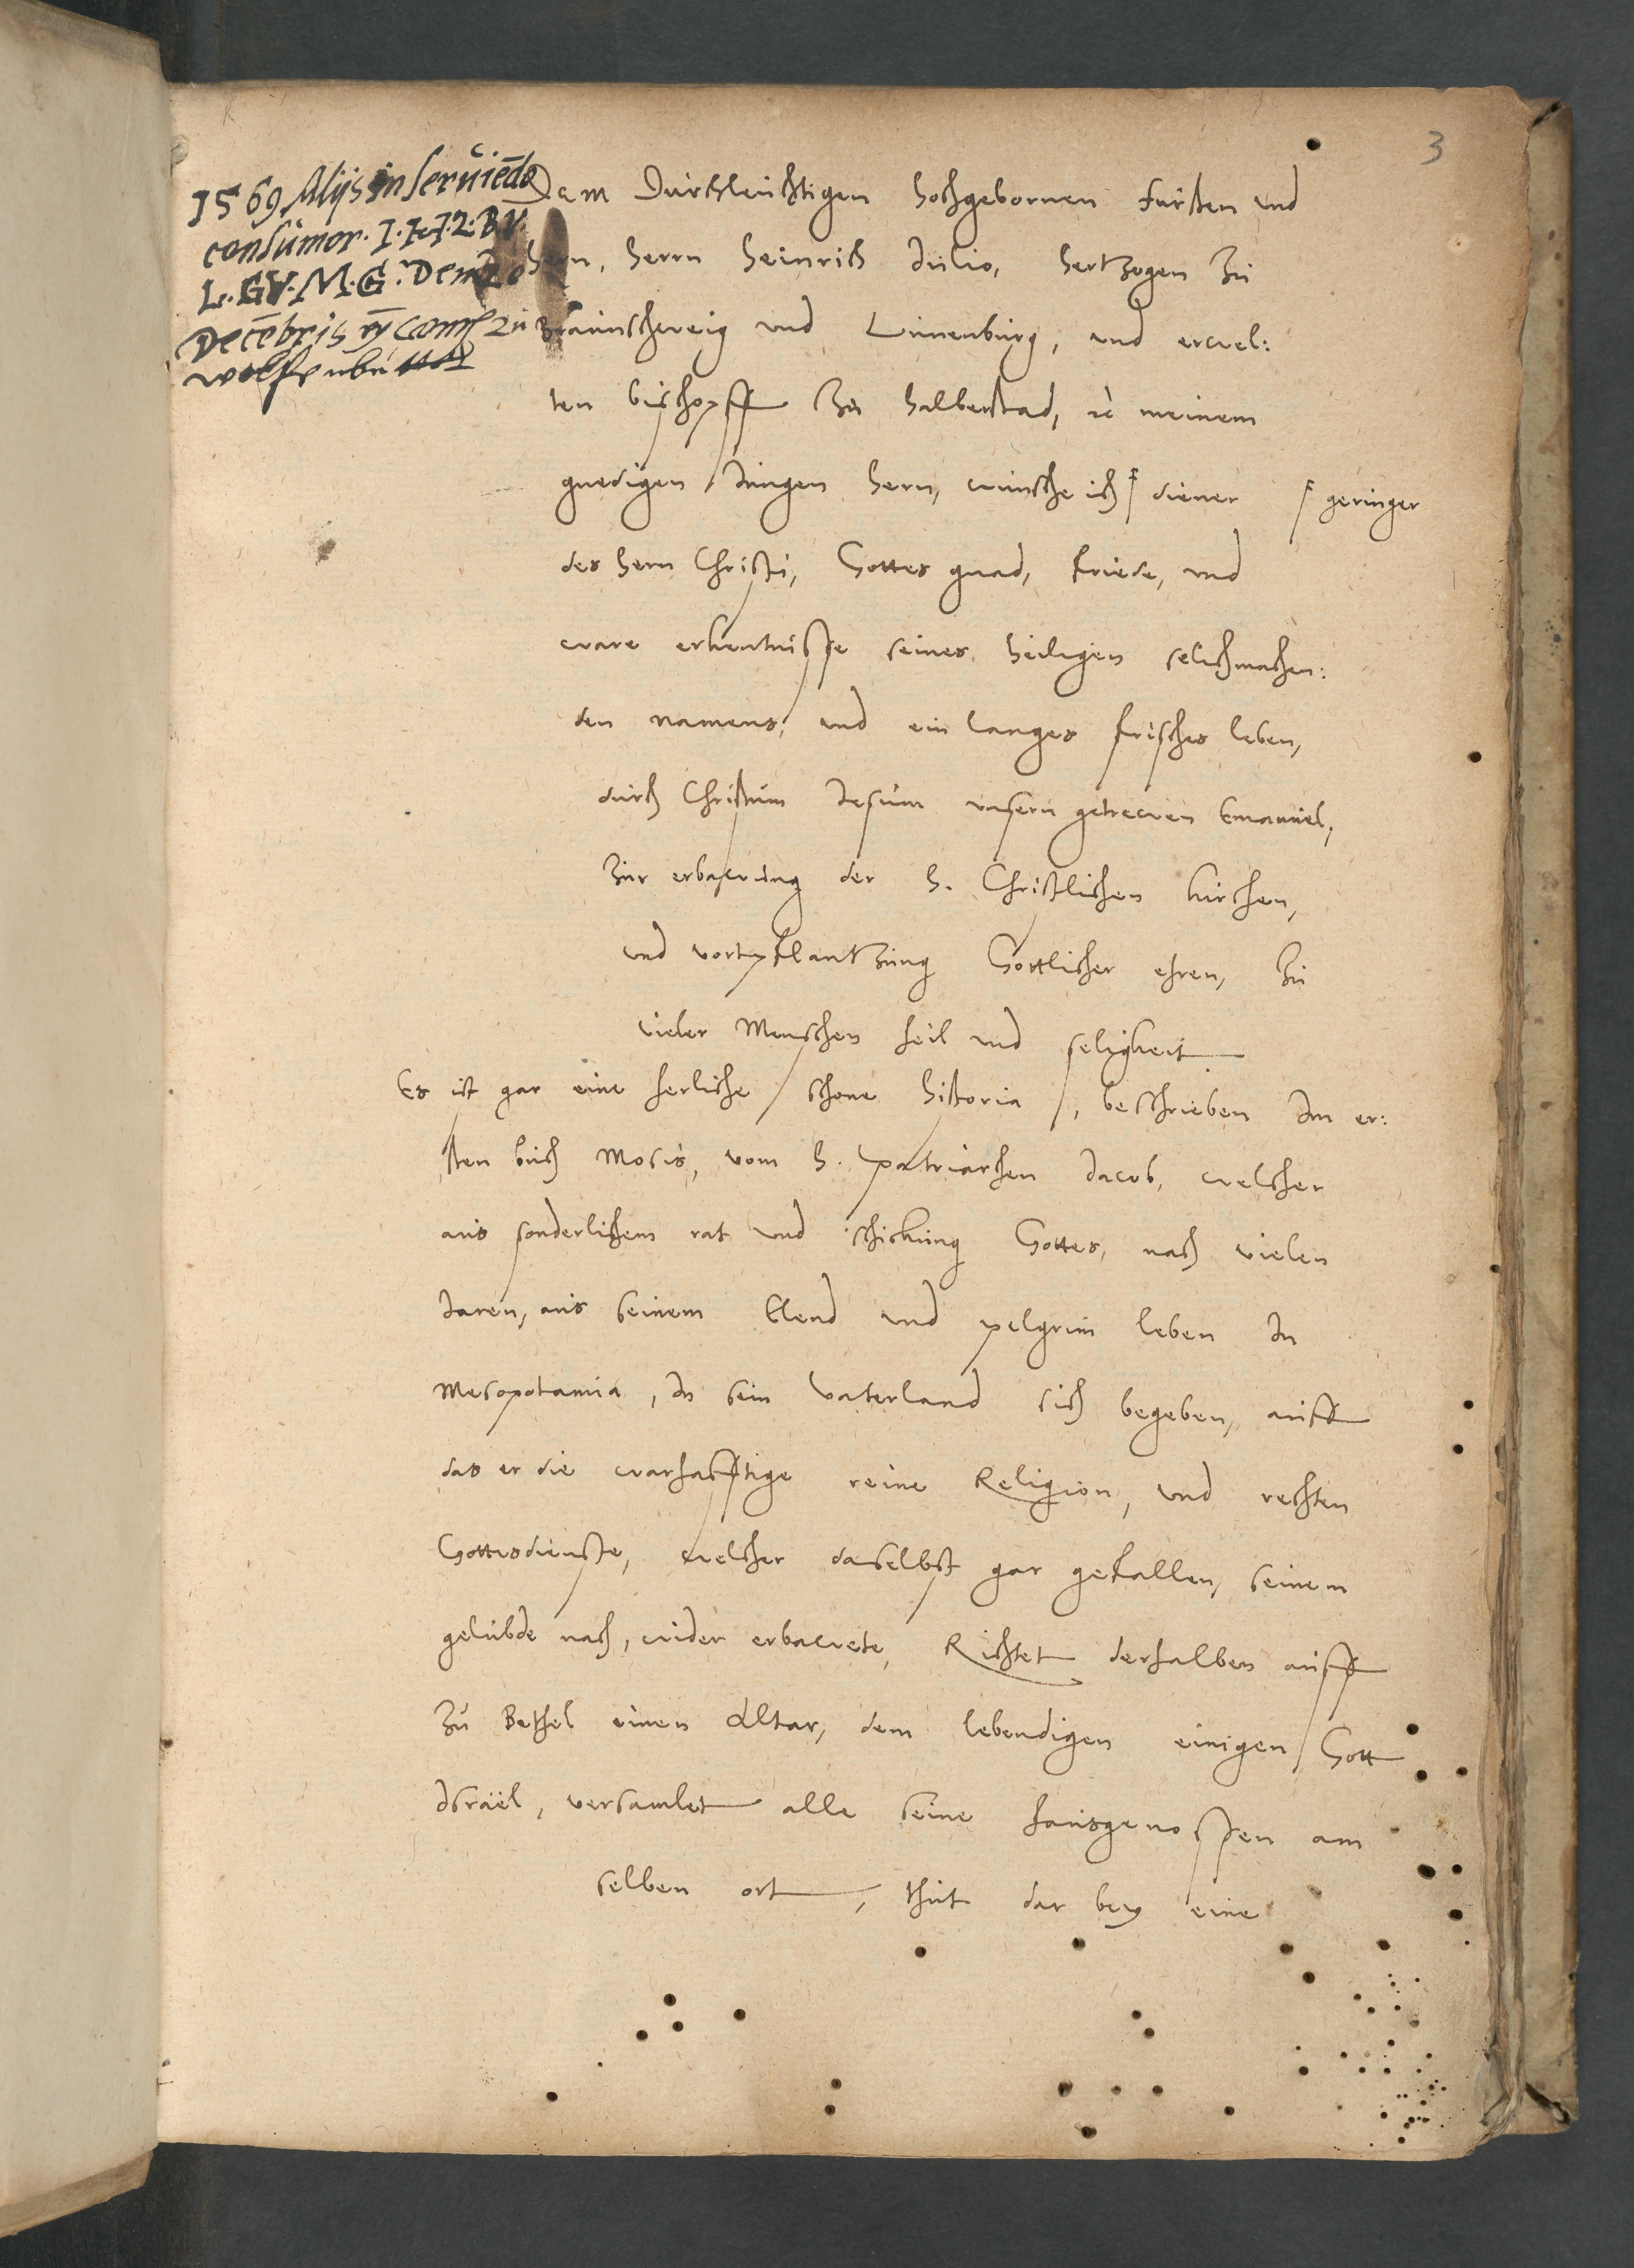 3
1569 Alijs in serviēdo
consumor. I. H. Z. B. V.
L. G. V. M. G.
Decēbris
Dem Durchleuchtigen hochgebornen Fursten und
hern, herrn Heinrich Julio, hertzogen zu
Braunschweig und Lunenburg, und erwel:
ten bischoff zu Halberstad, ꝛc meinem
gnedigen Jungen hern, wunsche ich diener
geringer
des hern Christi, Gottes gnad, friede, und
ware erkentnisse seines heiligen selichmachen:
den namens, und ein langes frisches leben,
durch Christum Jesum unsern getrewen Emanuel,
zur erbawung der h. Christlichen kirchen,
und vortpflantzung Gottlicher ehren, zu
vieler Menschen heil und seligkeit
Es ist gar eine herliche schone historia, beschrieben Im er:
sten buch Mosis, vom h. patriarchen Jacob, welcher
aus sonderlichem rat und schickung Gottes, nach vielen
Jaren, aus seinem Elend und pelgrim leben In
Mesopotamia, In sein Vaterland sich begeben, auff
das er die warhafftige reine Religion, und rechten
Gottesdienste, welcher daselbst gar gefallen, seinem
gelubde nach, wider erbawete, Richtet derhalben auff
zu Bethel einen Altar, dem lebendigen einigen Gott
Israel, versamlet alle seine hausgenossen am
selben ort, thut dar bey eine